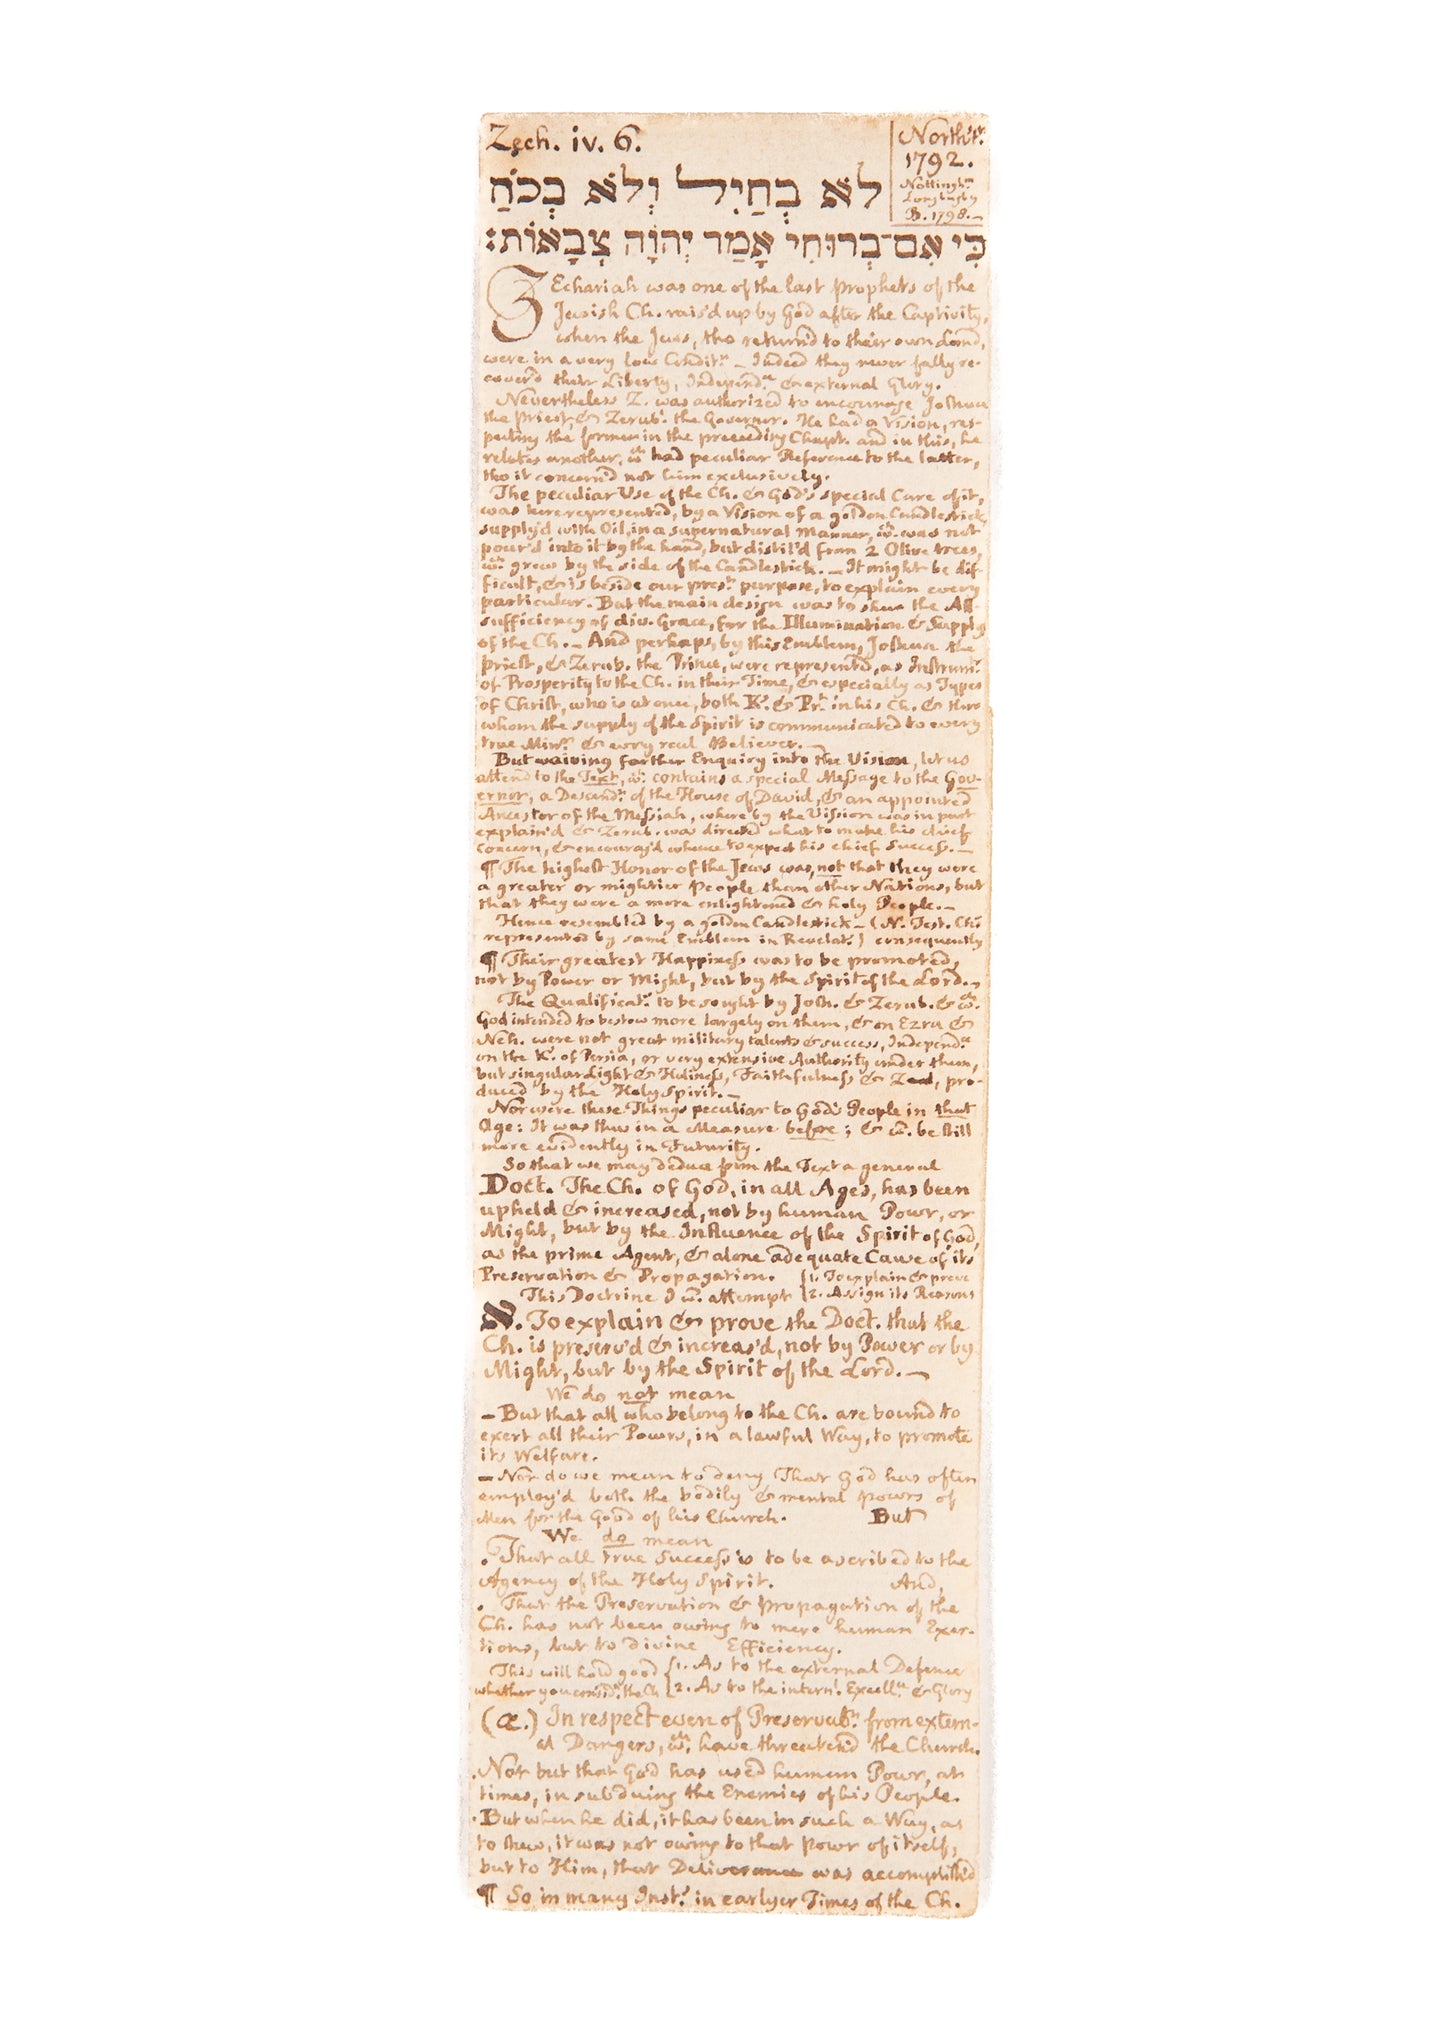 Zech. iv. 6.
North'n.
1792.
Nottingh.m
B. 1798.
לֹא בְחַיִל וְלֹא בְכֹחַ
כִּי אִם־בְּרוּחִי אָמַר יְהוָֹה צְבָאוֹת׃
ZEchariah was one of the last prophets of the
Jewish Ch. rais'd up by God after the Captivity,
when the Jews, tho return'd to their own Land,
were in a very low Condit.n — Indeed they never fully re-
cover'd their Liberty, Independ.ce & external Glory.
Nevertheless Z. was authorized to encourage Joshua
the priest, & Zerub. the Governor. He had a Vision, res-
pecting the former in the preceeding Chapt. and in this, he
relates another, wch had peculiar Reference to the latter,
tho it concern'd not him exclusively.
The peculiar Use of the Ch. & God's special Care of it,
was here represented, by a Vision of a golden Candlestick,
supply'd with Oil, in a supernatural Manner, wch was not
pour'd into it by the hand, but distil'd from 2 Olive trees,
wch grew by the side of the Candlestick. — It might be dif-
ficult, & is beside our pres.t purpose, to explain every
particular. But the main design was to shew the All-
sufficiency of div. Grace, for the Illumination & Supply
of the Ch. — And perhaps, by this Emblem, Joshua the
priest, & Zerub. the Prince, were represented, as Instrum.ts
of Prosperity to the Ch. in their Time, & especially as Types
of Christ, who is at once, both K. & Pr. in his Ch. & thro
whom the supply of the Spirit is communicated to every
true Min.r & every real Believer. —
But waiving farther Enquiry into the Vision, let us
attend to the Text, wch contains a special Message to the Gov-
ernor, a Descend.t of the House of David, & an appointed
Ancestor of the Messiah, whereby the Vission was in part
explain'd & Zerub. was directed what to make his chief
concern, & encourag'd whence to expect his chief success. —
¶ The highest Honor of the Jews was, not that they were
a greater or mightier people than other Nations, but
that they were a more enlightened & holy People. —
Hence resembled by a golden Candlestick — (N. Test. Ch.
represented by same Emblem in Revelat.) consequently
¶ Their greatest Happiness was to be promoted,
not by Power or Might, but by the Spirit of the Lord. —
The Qualificat.s to be sought by Josh. & Zerub. & wch
God intended to bestow more largely on them, & on Ezra &
Neh. were not great military talents & success, Independ.ce
on the K. of Persia, or very extensive Authority under them,
but singular Light & Holiness, Faithfulness & Zeal, pro-
duced by the Holy Spirit. —
Nor were these Things peculiar to God's People in that
Age: It was thus in a Measure before; & w.d be still
more evidently in Futurity.
So that we may deduce from the Text a general
Doct. The Ch. of God, in all Ages, has been
upheld & increased, not by human Powr, or
Might, but by the Influence of the Spirit of God,
as the prime Agent, & alone adequate Cause of its
Preservation & Propagation.
This Doctrine I w. attempt { 1. To explain & prove
2. Assign its Reasons
א. To explain & prove the Doct. that the
Ch. is preserv'd & increas'd, not by Power or by
Might, but by the Spirit of the Lord. —
We do not mean
— But that all who belong to the Ch. are bound to
exert all their Powers, in a lawful Way, to promote
its Welfare.
— Nor do we mean to deny That God has often
employ'd both the bodily & mental powrs of
Men for the Good of his Church. But
We do mean
. That all true Success is to be ascribed to the
Agency of the Holy Spirit. And,
. That the Preservation & Propagation of the
Ch. has not been owing to mere human Exer-
tions, but to divine Efficiency.
This will hold good { 1. As to the external Defence
whether you consid.r the Ch { 2. As to the intern.l Excell.ce & Glory
(æ.) In respect even of Preservat.n from extern-
al Dangers, wch have threaten'd the Church.
. Not but that God has used human Powr, at
times, in subduing the Enemies of his People.
. But when he did, it has been in such a Way, as
to shew, it was not owing to that Powr of itself,
but to Him, that Deliverance was accomplish'd
¶ So in many Inst.s in earlyer Times of the Ch.